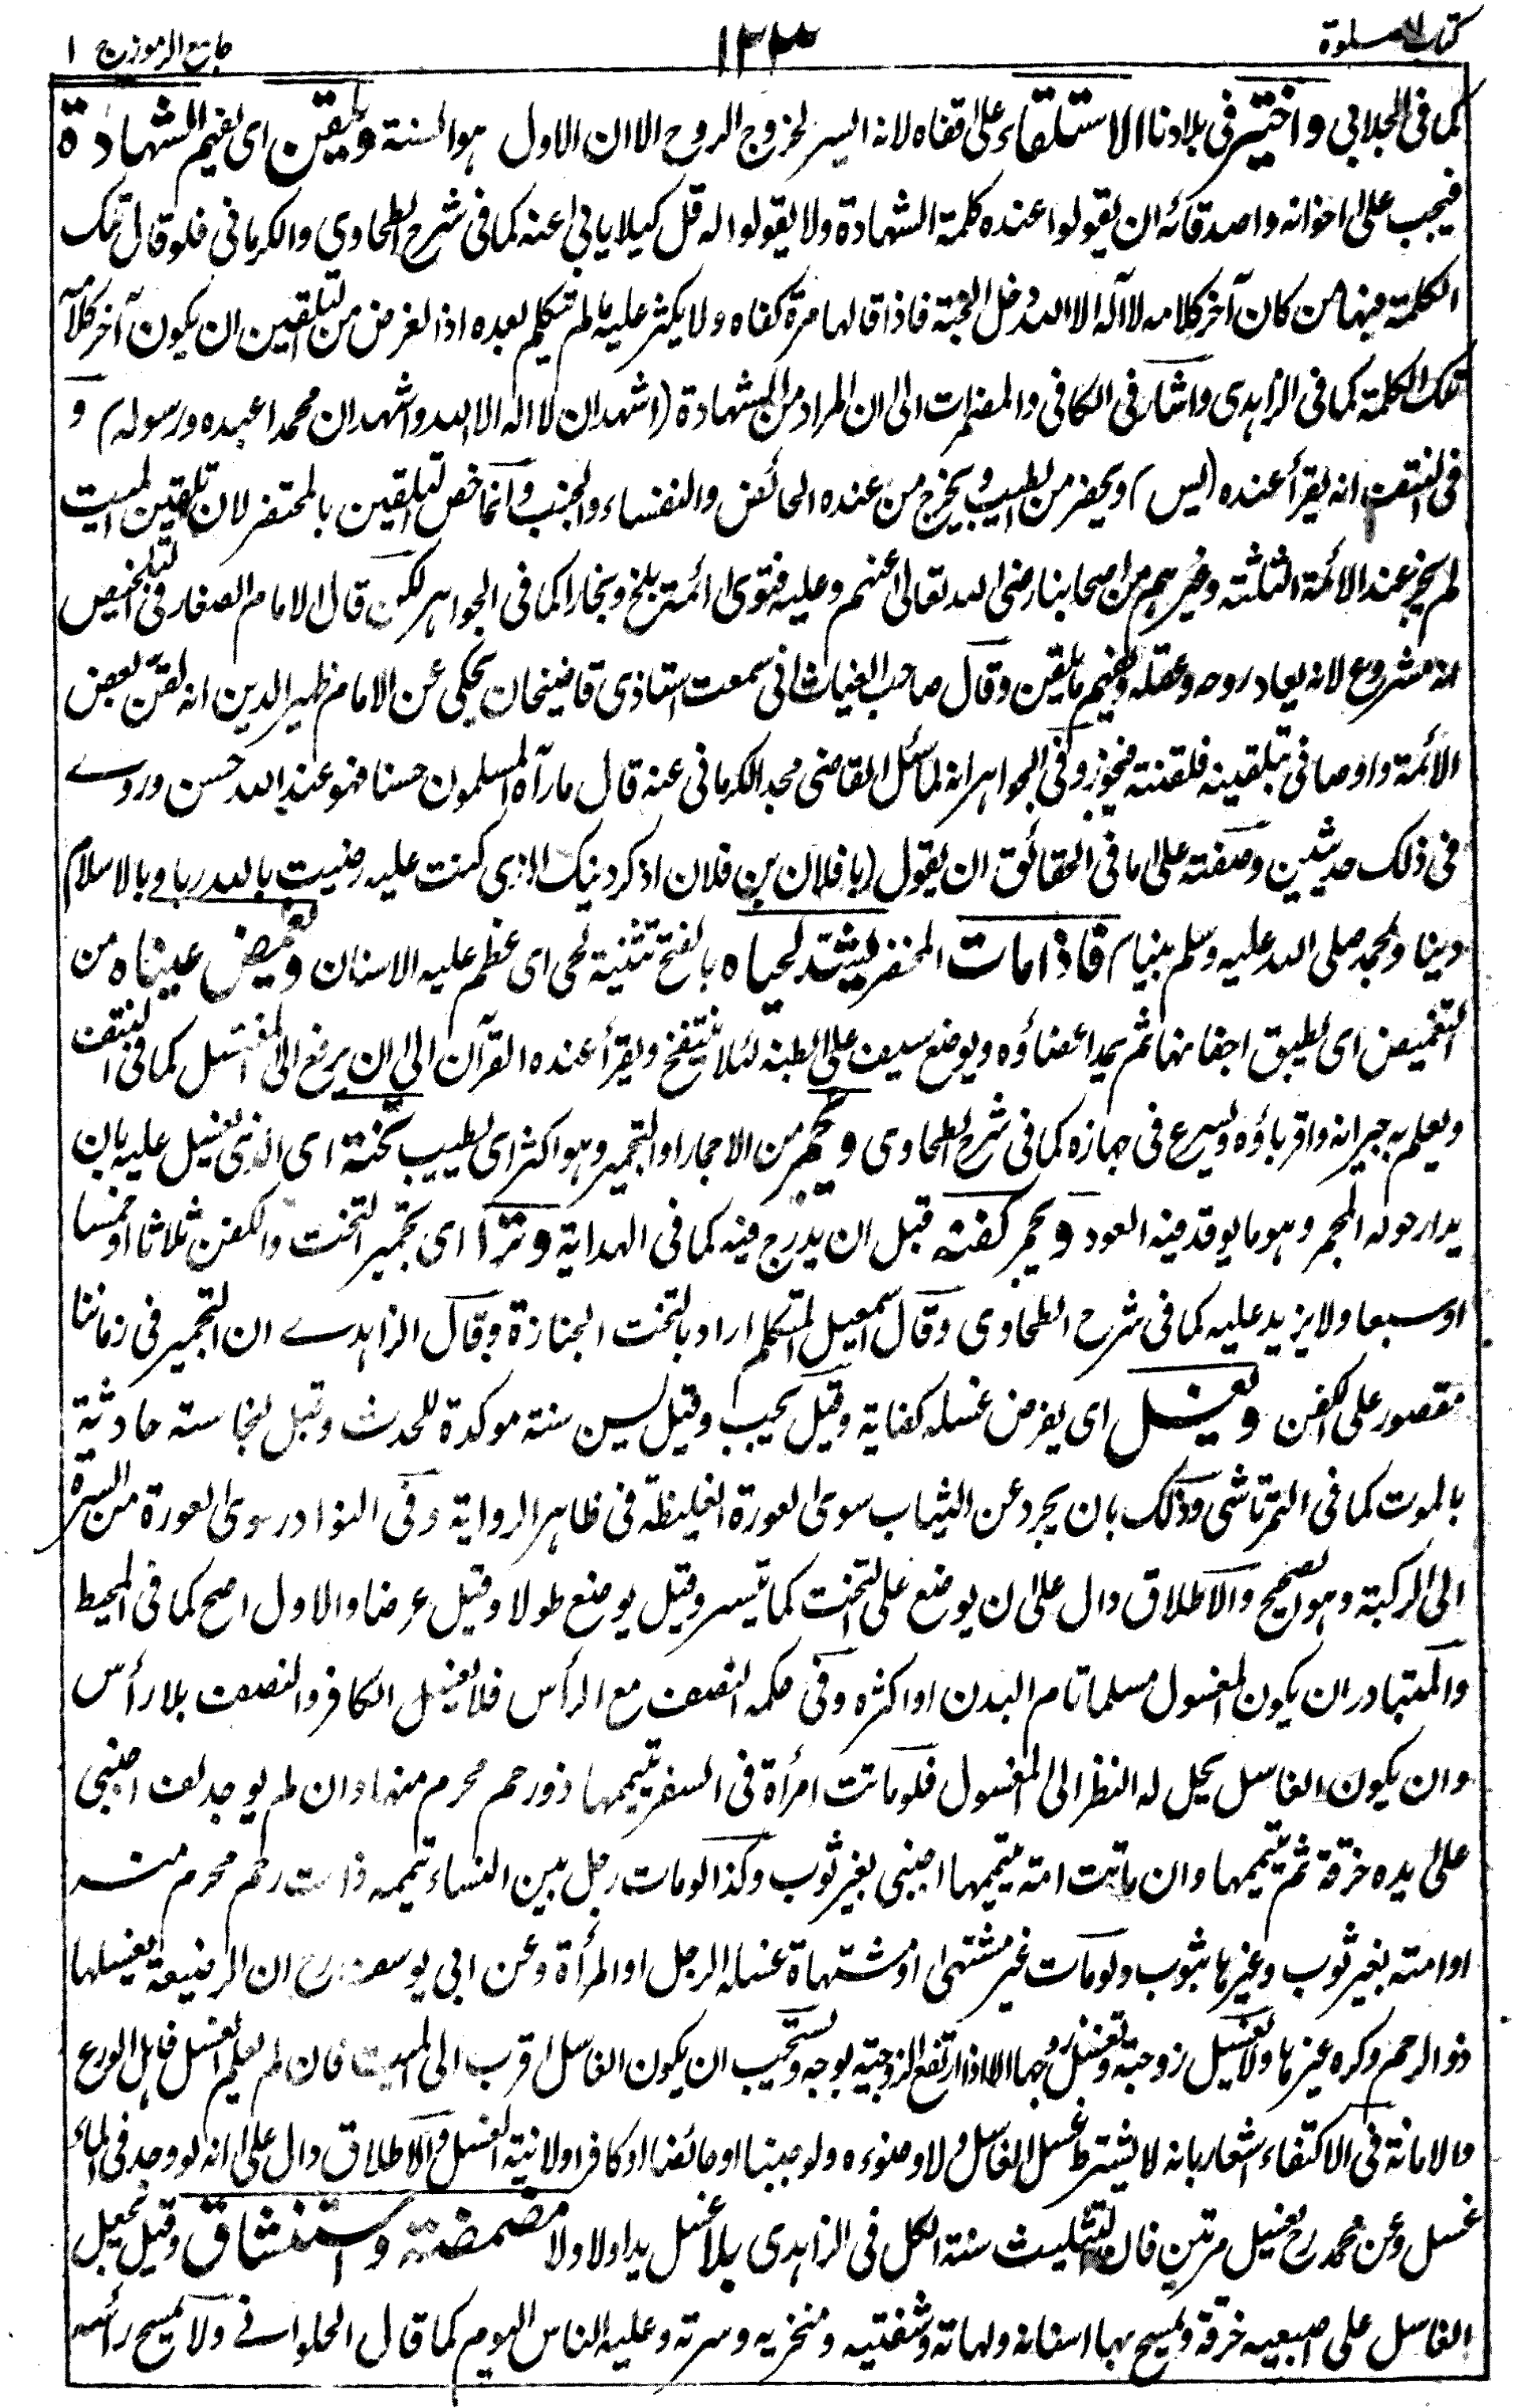 كتاب الصلوة ١٣٣ جامع الرموز ج ١
كما فى الجلابي واختير فى بلادنا الاستلقاء على قفاه لانه ايسر لخروج الروح الا ان الاول هو السنة ويلقن اى يفهم الشهادة
فيجب على اخوانه واصدقائه ان يقولوا عنده كلمة الشهادة ولا يقولوا له قل كيلا يابى عنه كما فى شرح الطحاوى والكرمانى فلو قال تلك
الكلمة فبها من كان آخر كلامه لا اله الا الله دخل الجنة فاذا قالها مرة كفاه ولا يكثر عليه ما لم يتكلم بعده اذ الغرض من التلقين ان يكون آخر كلامه
تلك الكلمة كما فى الزاهدى واشار فى الكافى والمضمرات الى ان المراد من الشهادة (اشهد ان لا اله الا الله واشهد ان محمدا عبده ورسوله) و
فى المنتقف انه يقرأ عنده (يس) ويحضر من الطيب ويخرج من عنده الحائض والنفساء والجنب وانما خص التلقين بالمحتضر لان تلقين الميت
لم يجز عند الائمة الثلثة وغيرهم من اصحابنا رضى الله تعالى عنهم وعليه فتوى ائمة بلخ وبخارا كما فى الجواهر لكن قال الامام الصفار فى التلخيص
انه مشروع لانه يعاد روحه وعقله ويفهم ما يلقن وقال صاحب الغياث انى سمعت استاذى قاضيخان يحكى عن الامام ظهير الدين انه لقن بعض
الائمة واوصانى بتلقينه فلقنته فيجوز وفى الجواهر انه لما سئل القاضى مجد الكرمانى عنه قال ما رآه المسلمون حسنا فهو عند الله حسن وروے
فى ذلك حديثين وصفته على ما فى الحقائق ان يقول (يا فلان بن فلان اذكر دينك الذى كنت عليه رضيت بالله ربا وبالاسلام
دينا وبمحمد صلى الله عليه وسلم نبيا) فاذا مات المحتضر يشد لحياه بالفتح تثنية لحى اى عظم عليه الاسنان ويغمض عيناه من
التغميض اى يطبق اجفانهما ثم يمد اعضاؤه ويوضع سيف على بطنه لئلا ينتفخ ويقرأ عنده القرآن الى ان يرفع الى المغتسل كما فى المنتقف
ويعلم به جيرانه واقرباؤه ويسرع فى جهازه كما فى شرح الطحاوى ويجمر من الاجمار او التجمير وهو اكثر اى يطيب تخته اى الذى يغسل عليه بان
يدار حوله المجمر وهو ما يوقد فيه العود ويجمر كفنه قبل ان يدرج فيه كما فى الهداية وترا اى تجمير التخت والكفن ثلاثا او خمسا
او سبعا ولا يزيد عليه كما فى شرح الطحاوى وقال اسمعيل المتكلم اراد بالتخت الجنازة وقال الزاهدے ان التجمير فى زماننا
مقصور على الكفن ويغسل اى يفرض غسله كفاية وقيل يجب وقيل يسن سنة موكدة للحدث وقيل لنجاسته حادثة
بالموت كما فى التمرتاشى وذلك بان يجرد عن الثياب سوى العورة الغليظة فى ظاهر الرواية وفى النوادر سوى العورة من السرة
الى الركبة وهو الصحيح والاطلاق دال على ان يوضع على التخت كما تيسر وقيل يوضع طولا وقيل عرضا والاول اصح كما فى المحيط
والمتبادر ان يكون المغسول مسلما تام البدن او اكثره وفى حكمه النصف مع الرأس فلا يغسل الكافر والنصف بلا رأس
وان يكون الغاسل يحل له النظر الى المغسول فلو ماتت امرأة فى السفر يتيممها ذو رحم محرم منها وان لم يوجد لف اجنبى
على يده خرقة ثم يتيممها وان ماتت امة يتيممها اجنبى بغير ثوب وكذا لو مات رجل بين النساء تيممه ذات رحم محرم منه
او امته بغير ثوب وغيرها بثوب ولو مات غير مشتهى او مشتهاة غسله الرجل او المرأة وعن ابى يوسف رح ان الرضيعة يغسلها
ذو الرحم وكره غيرها ولا يغسل زوجته وتغسل زوجها الا اذا ارتفع الزوجية بوجه ويستحب ان يكون الغاسل اقرب الى الميت فان لم يعلم الغسل فاهل الورع
والامانة وفى الاكتفاء اشعار بانه لا يشترط غسل الغاسل ولا وضوءه ولو جنبا او حائضا او كافرا ولا نية الغسل والاطلاق دال على انه لو وجد فى الماء
غسل وعن محمد رح يغسل مرتين فان التثليث سنة الكل فى الزاهدى بلا غسل يد اولا ولا مضمضة واستنشاق وقيل يجعل
الغاسل على اصبعيه خرقة ويمسح بها اسنانه ولهاته وشفتيه ومنخريه وسرته وعليه الناس اليوم كما قال الحلوانے ولا يمسح رأسه